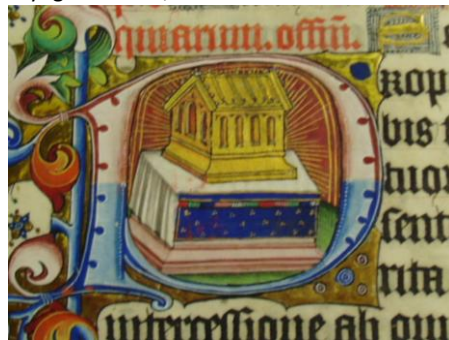 quiarum. offm̄.
Prop
bis t
tuor
sent
rita
intercessione ab om